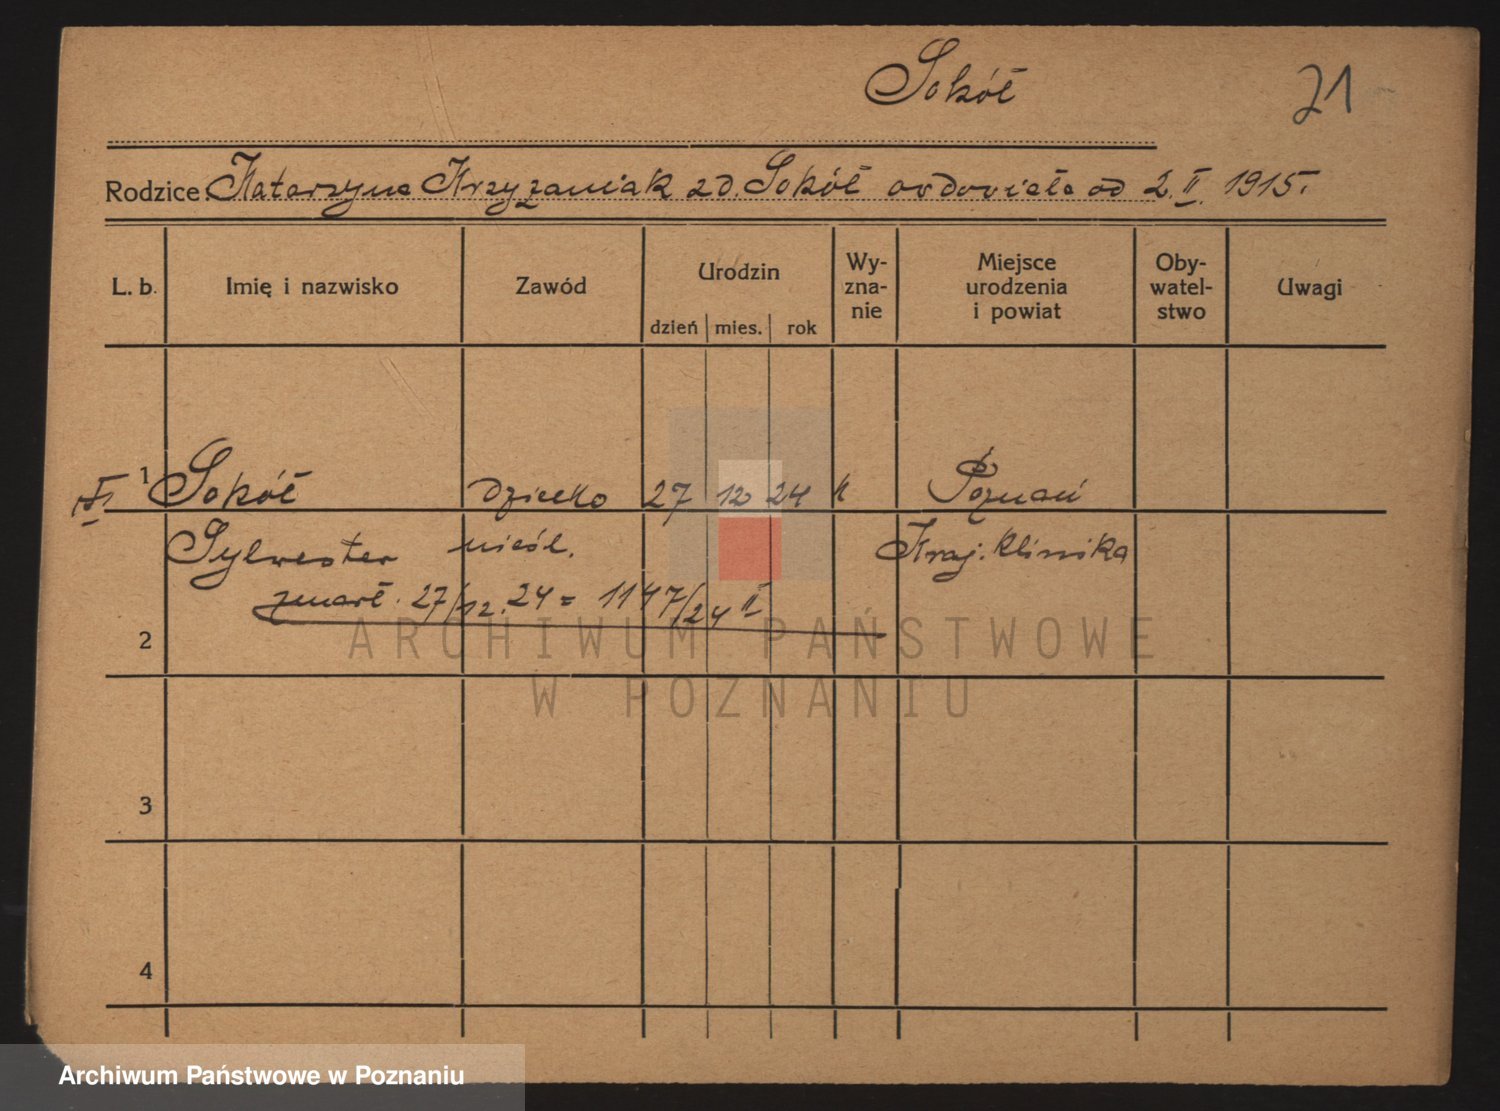 Sokół
21
Rodzice: Katarzyna Krzyżaniak zd. Sokół owdowiała od 2.II. 1915.
L. b. Imię i nazwisko Zawód Urodzin Wyznanie Miejsce urodzenia i powiat Obywatelstwo Uwagi
dzień mies. rok
1 Sokół dziecko 27 12 24 k Poznań
Sylwester nieśl. Kraj. Klinika
zmarł. 27/12. 24 = 1147/24 II
2
3
4
ARCHIWUM PAŃSTWOWE
W POZNANIU
Archiwum Państwowe w Poznaniu